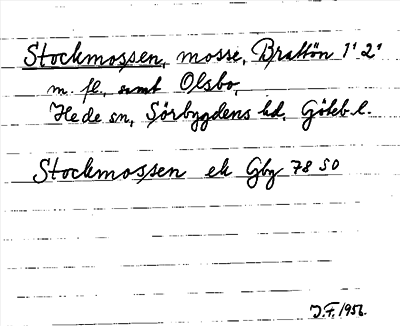 Stockmossen, mosse, Brattön 1¹ 2¹
m. fl., samt Olsbo,
Hede sn, Sörbygdens hd, Göteb. l.
Stockmossen ek Gbg 78 SO
J.F. 1956.